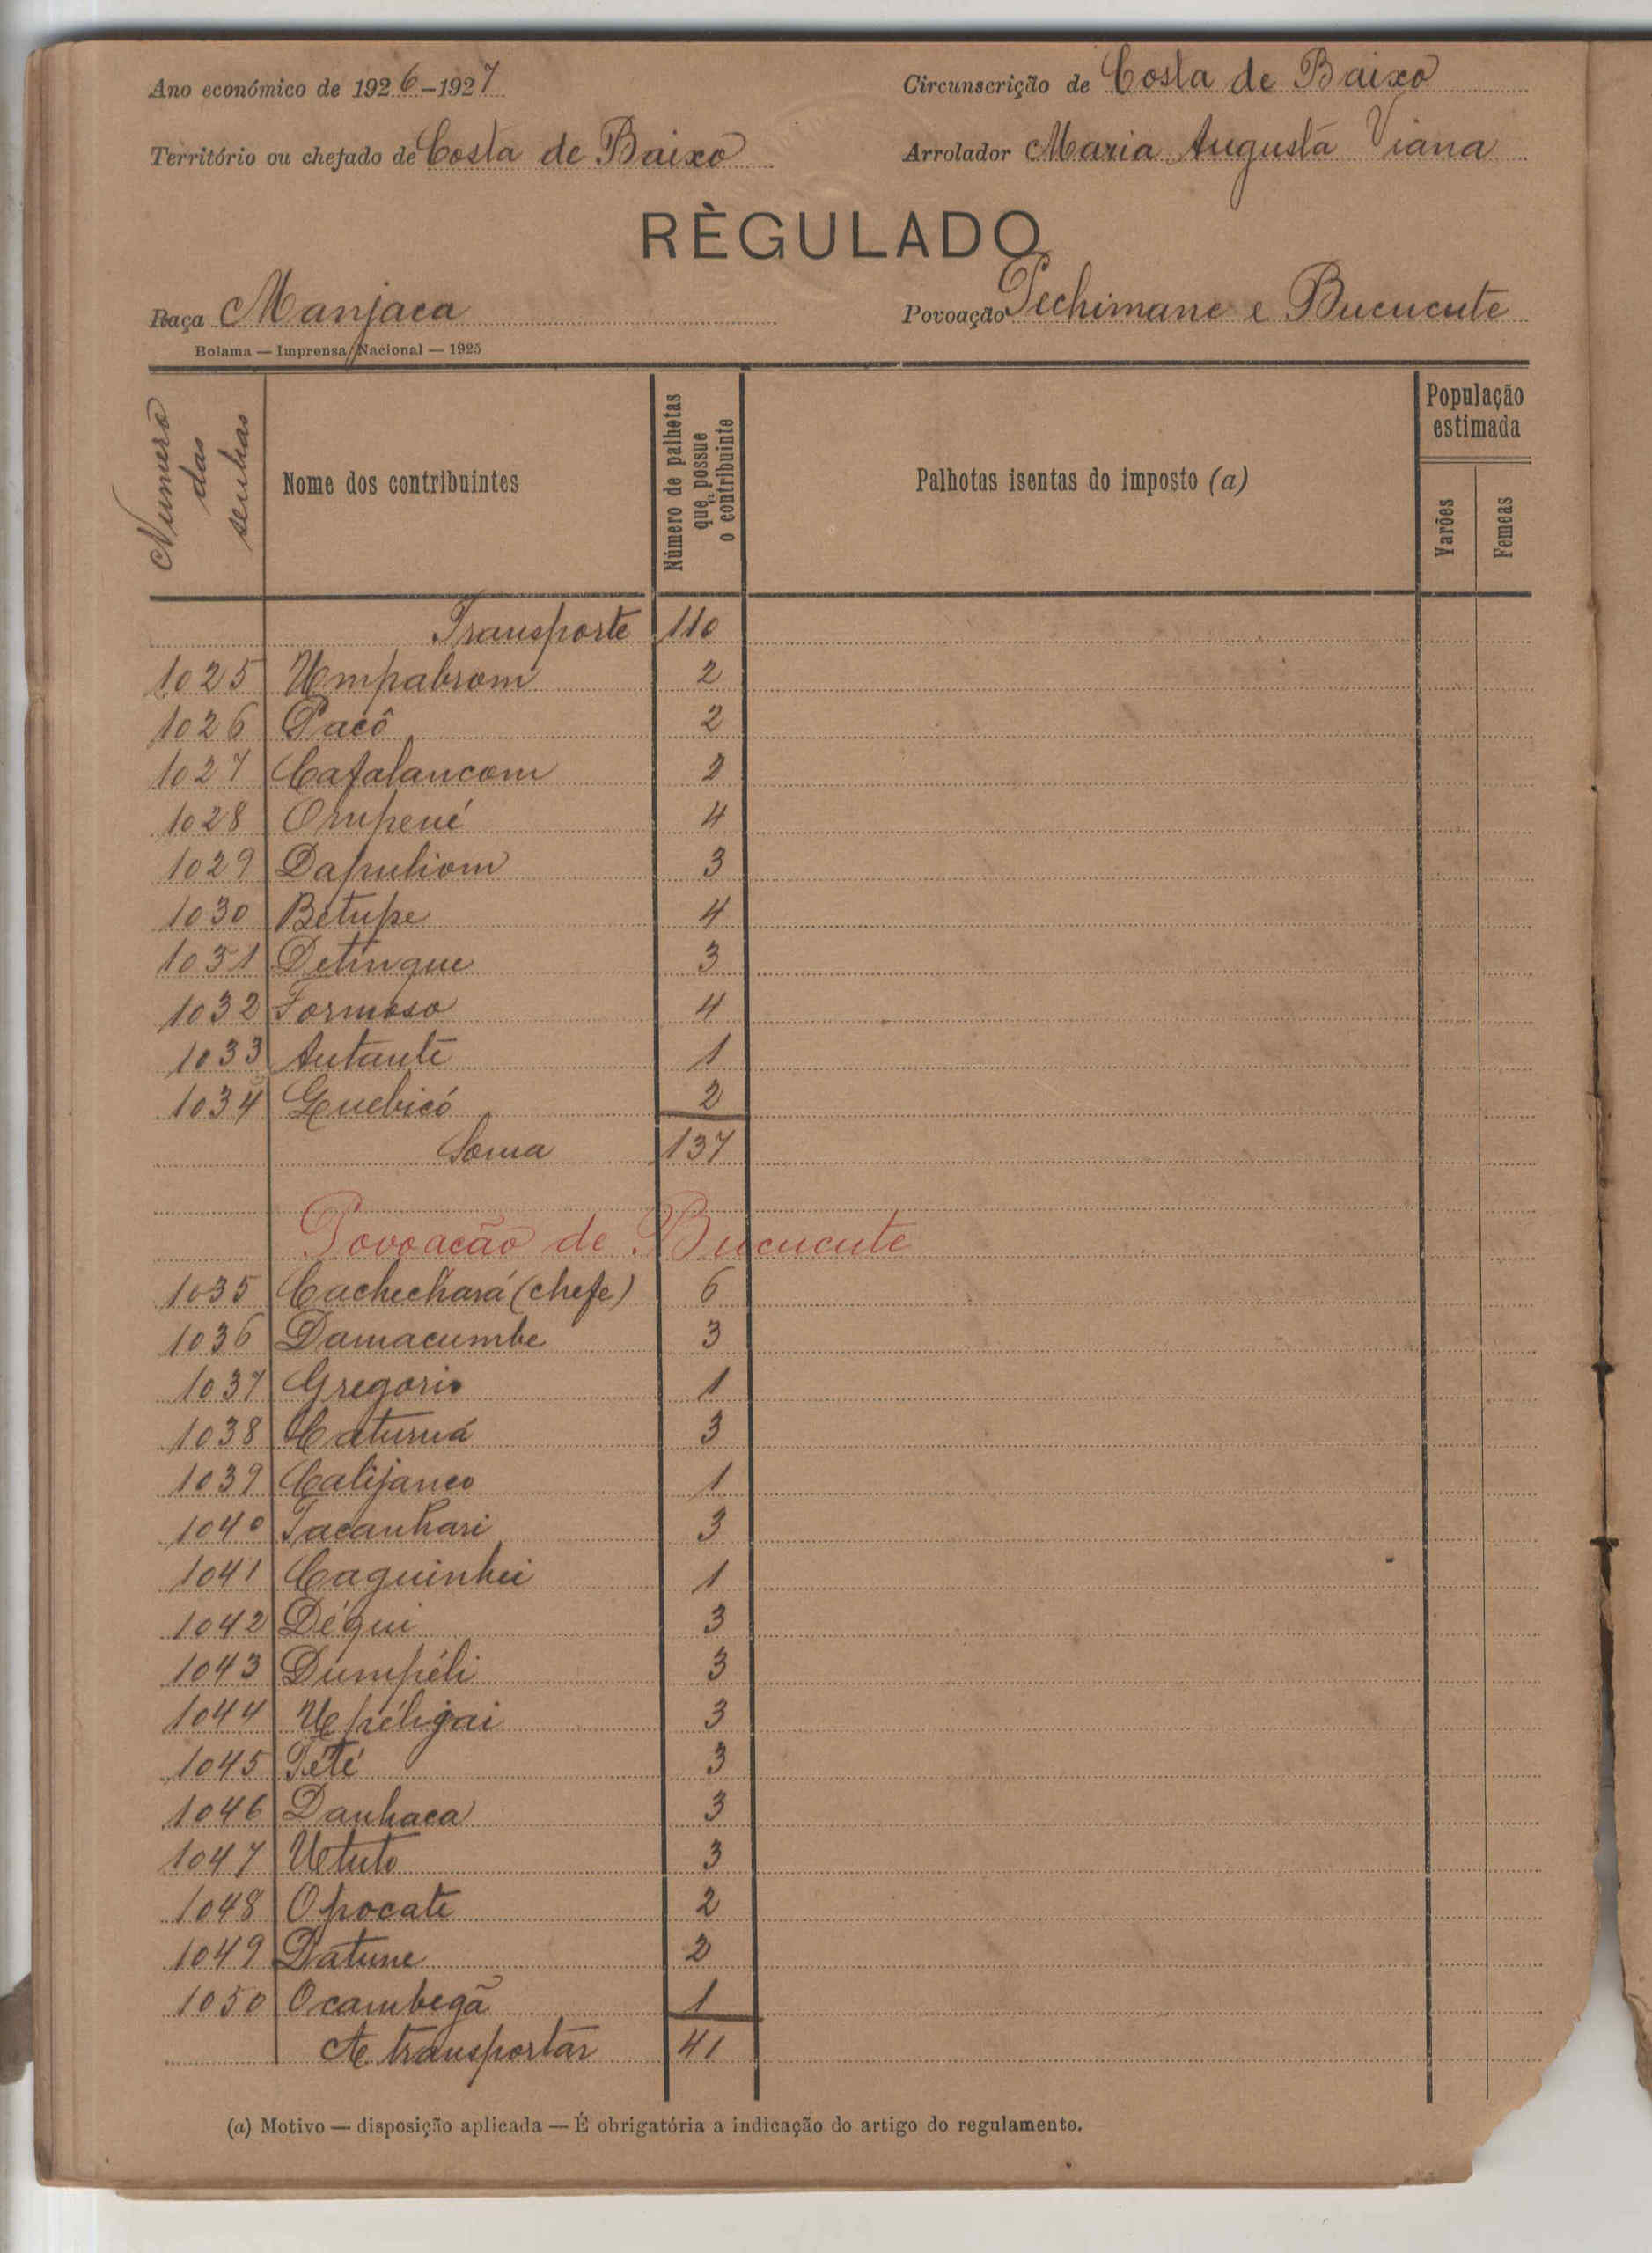 Ano económico de 1926-1927
Circunscrição de Costa de Baixo
Território ou chefado de Costa de Baixo
Arrolador Maria Augusta Viana
RÈGULADO
Raça Manjaca
Povoação Pechimane e Bucucute
Bolama — Imprensa Nacional — 1925
Numero das senhas
Nome dos contribuintes
Número de palhotas que possue o contribuinte
Palhotas isentas do imposto (a)
População estimada
Varões
Femeas
Transporte 110
1025 Umpabrom 2
1026 Pacô 2
1027 Cafalancom 2
1028 Orupené 4
1029 Dapuliom 3
1030 Betupe 4
1031 Detingue 3
1032 Formoso 4
1033 Autante 1
1034 Quebicó 2
Soma 137
Povoacão de Bucucute
1035 Cachechará (chefe) 6
1036 Damacumbe 3
1037 Gregorio 1
1038 Caturná 3
1039 Calijanco 1
1040 Tacanhari 3
1041 Caguinhei 1
1042 Dégui 3
1043 Dumpéli 3
1044 Upéligai 3
1045 Pété 3
1046 Danhaca 3
1047 Ututo 3
1048 Opocate 2
1049 Datune 2
1050 Ocambegã 1
A transportar 41
(a) Motivo — disposição aplicada — É obrigatória a indicação do artigo do regulamento.